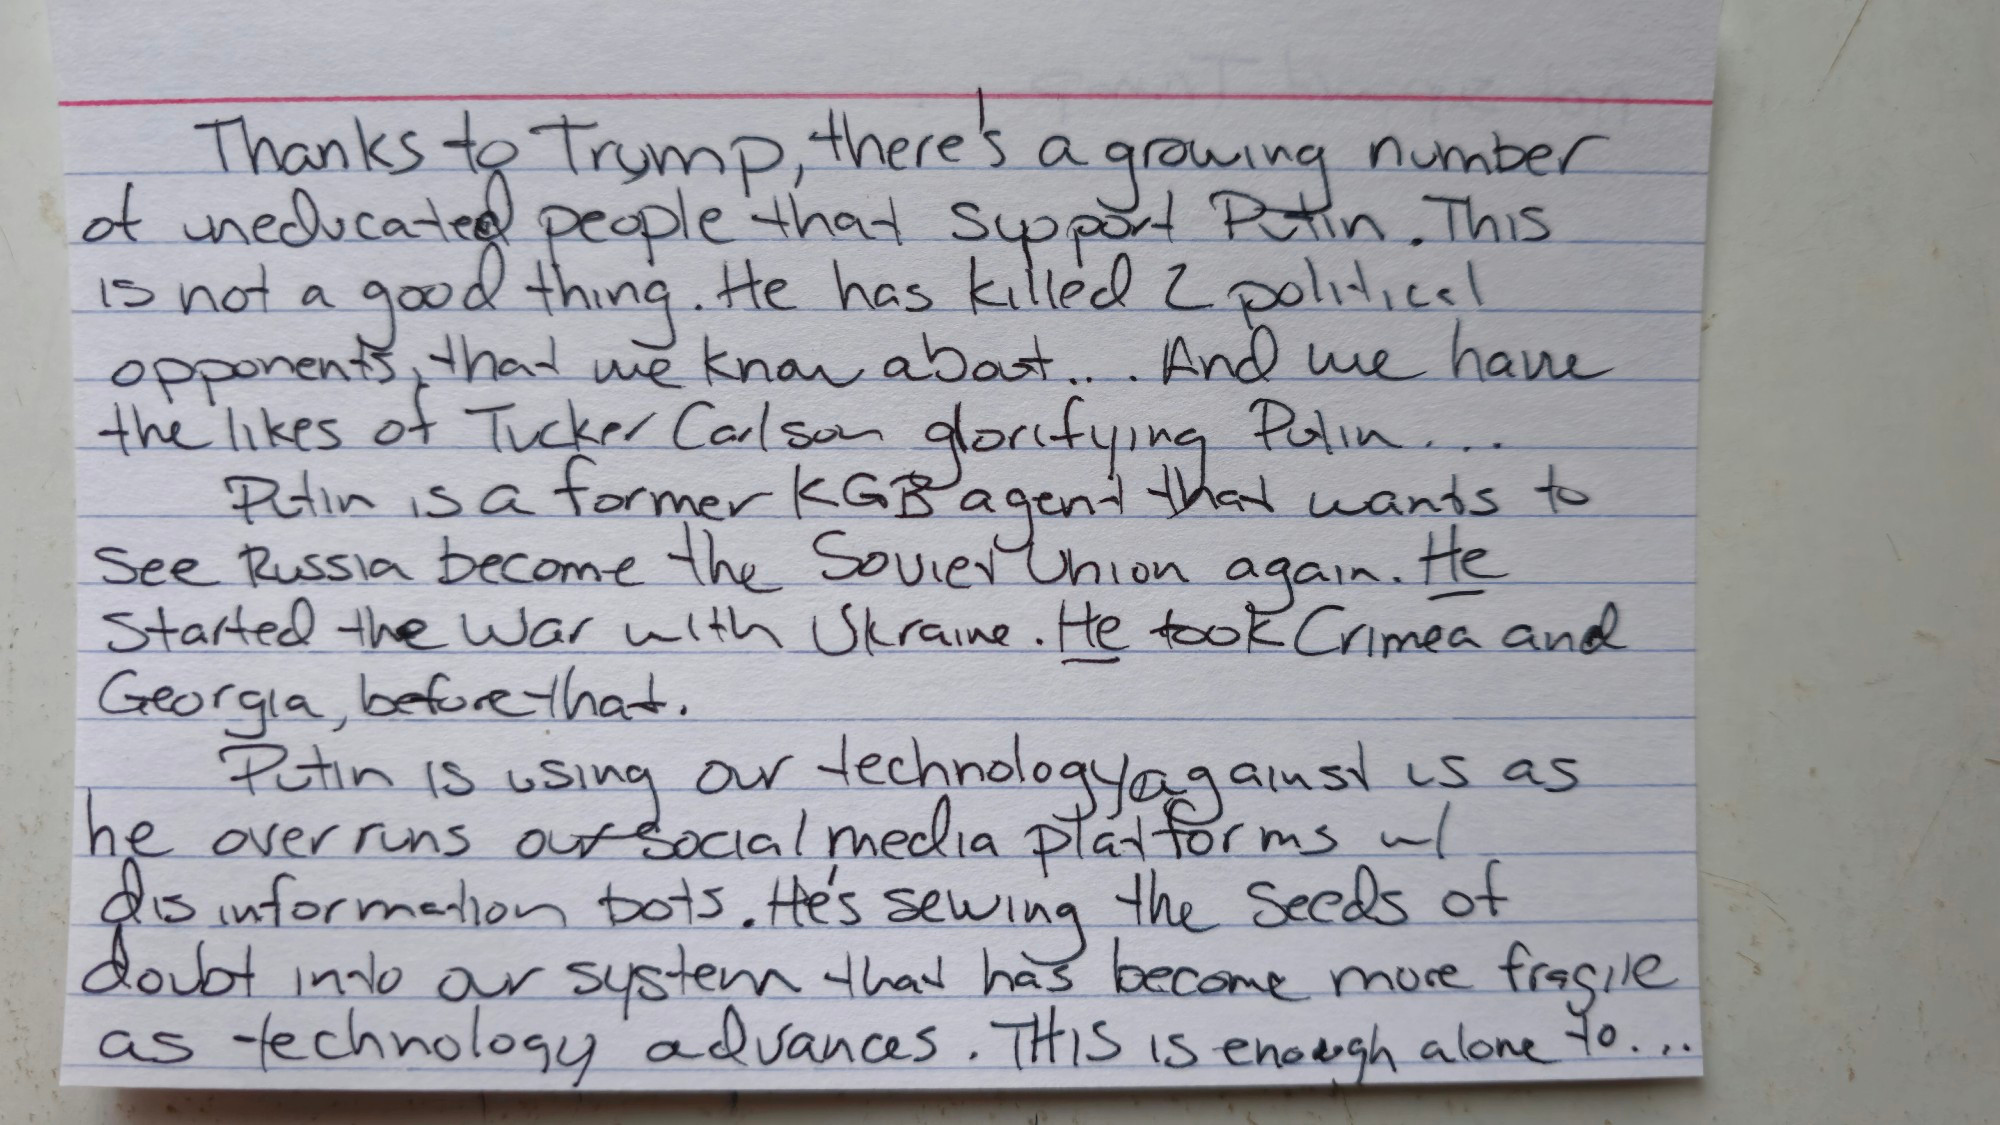 Thanks to Trump, there's a growing number
of uneducated people that support Putin. This
is not a good thing. He has killed 2 political
opponents, that we know about... And we have
the likes of Tucker Carlson glorifying Putin...
Putin is a former KGB agent that wants to
see Russia become the Soviet Union again. He
started the War with Ukraine. He took Crimea and
Georgia, before that.
Putin is using our technology against us as
he overruns our social media platforms w/
disinformation bots. He's sewing the seeds of
doubt into our system that has become more fragile
as technology advances. THIS is enough alone to...